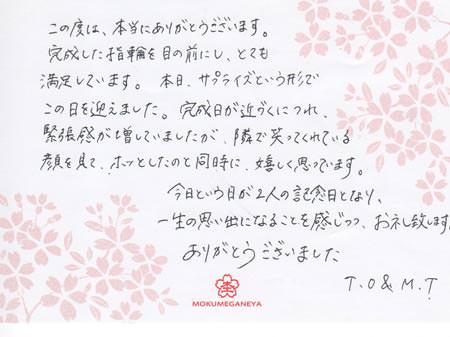 この度は、本当にありがとうございます。
完成した指輪を目の前にし、とても
満足しています。本日、サプライズという形で
この日を迎えました。完成日が近づくにつれ、
緊張感が増していましたが、隣で笑ってくれている
顔を見て、ホッとしたのと同時に、嬉しく思っています。
今日という日が2人の記念日となり、
一生の思い出になることを感じつつ、お礼致します
ありがとうございました
T.O & M.T
MOKUMEGANEYA